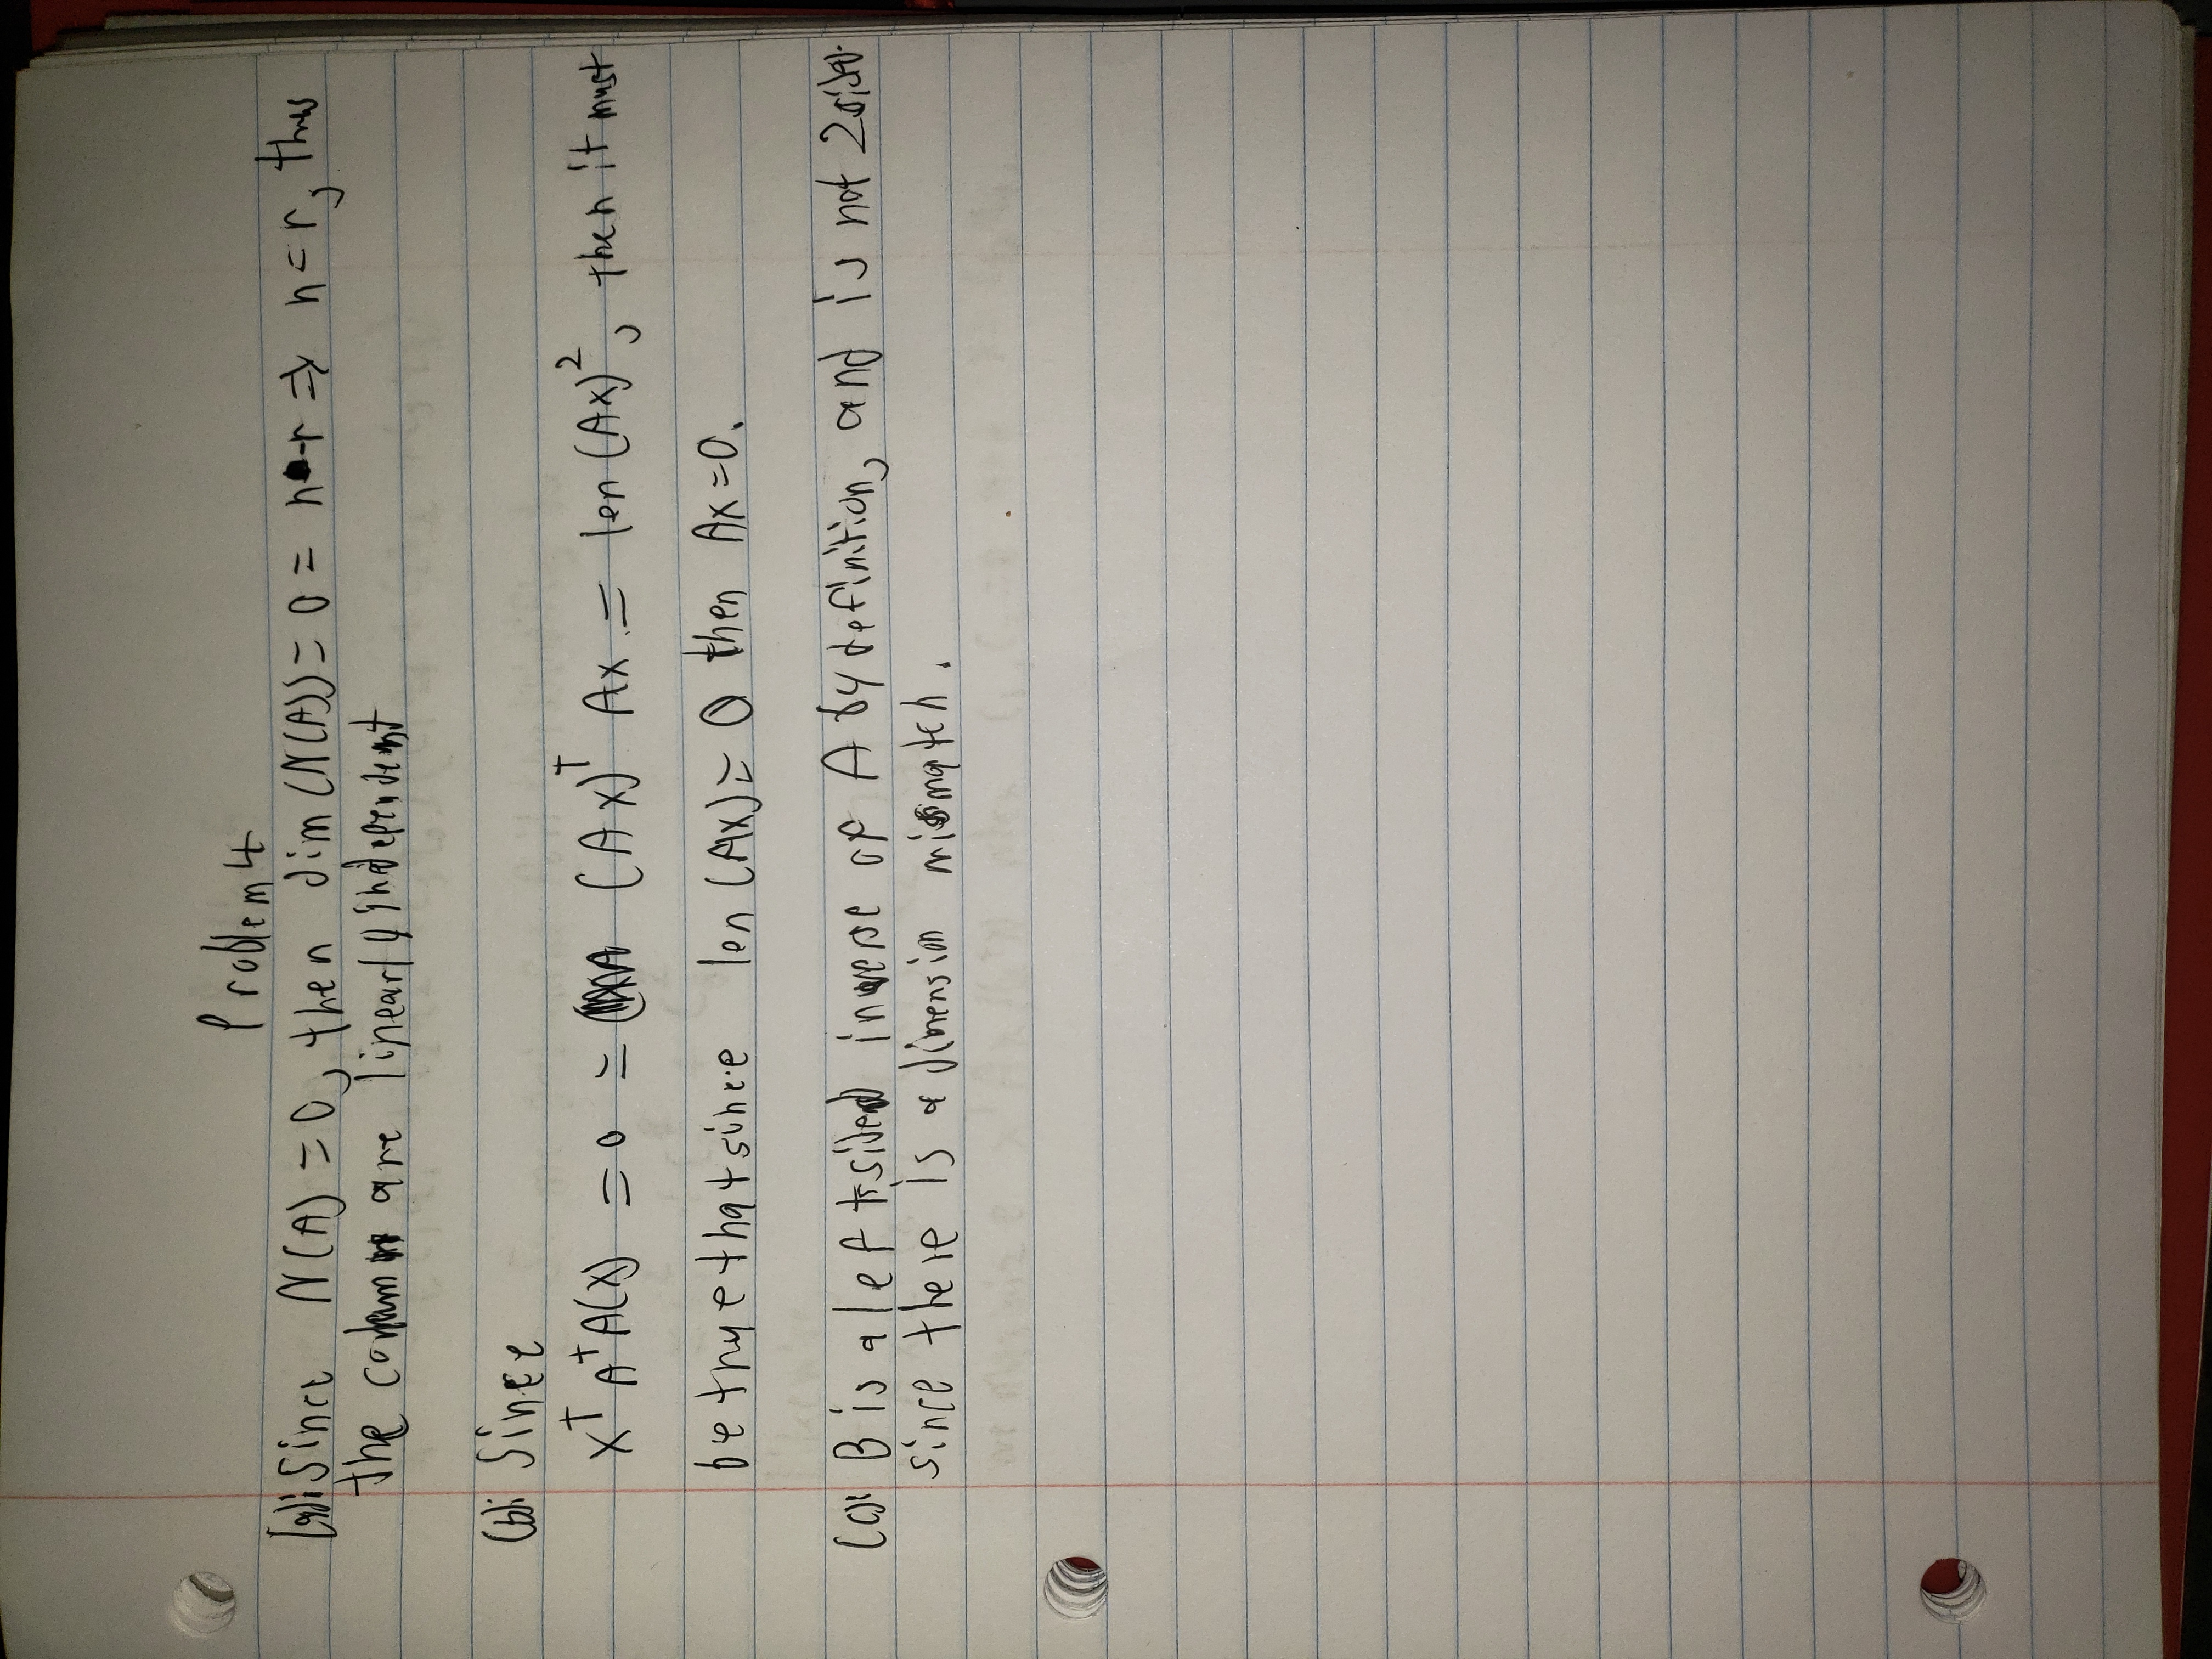 Problem 4
(a): Since N(A) = 0, then dim (N(A)) = 0 = n - r ⇒ n = r, thus
the column are linearly independent
(b): Since
x^T A^T A(x) = 0 = (Ax)^T Ax = len (Ax)^2, then it must
be true that since len (Ax) = 0 then Ax = 0.
(c): B is a left sided inverse of A by definition, and is not 2 sided
since there is a dimension mismatch.